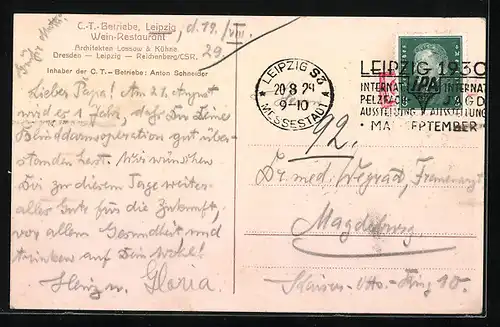 C.-T.-Betriebe, Leipzig, d. 19./VIII.
Wein-Restaurant 29.
Architekten Lossow & Kühne
Dresden — Leipzig — Reichenberg/CSR.
Inhaber der C.-T.-Betriebe: Anton Schneider
Lieber Papa! Am 21. August
wird es 1 Jahr, dass Du Deine
Blinddarmoperation gut über-
standen hast. Wir wünschen
Dir zu diesem Tage weiter
alles Gute für die Zukunft,
vor allem Gesundheit und
trinken auf Dein Wohl!
Heinz u. Gloria.
LEIPZIG S3
20.8.29
9-10
MESSESTADT
LEIPZIG 1930
INTERNAT INTERNAT
PELZ
IPA
AUSSTELLUNG AUSSTELLUNG
MAI SEPTEMBER
8
92.
Dr. med. Wegrad, Frauenarzt,
Magdeburg
Kaiser-Otto-Ring 10.